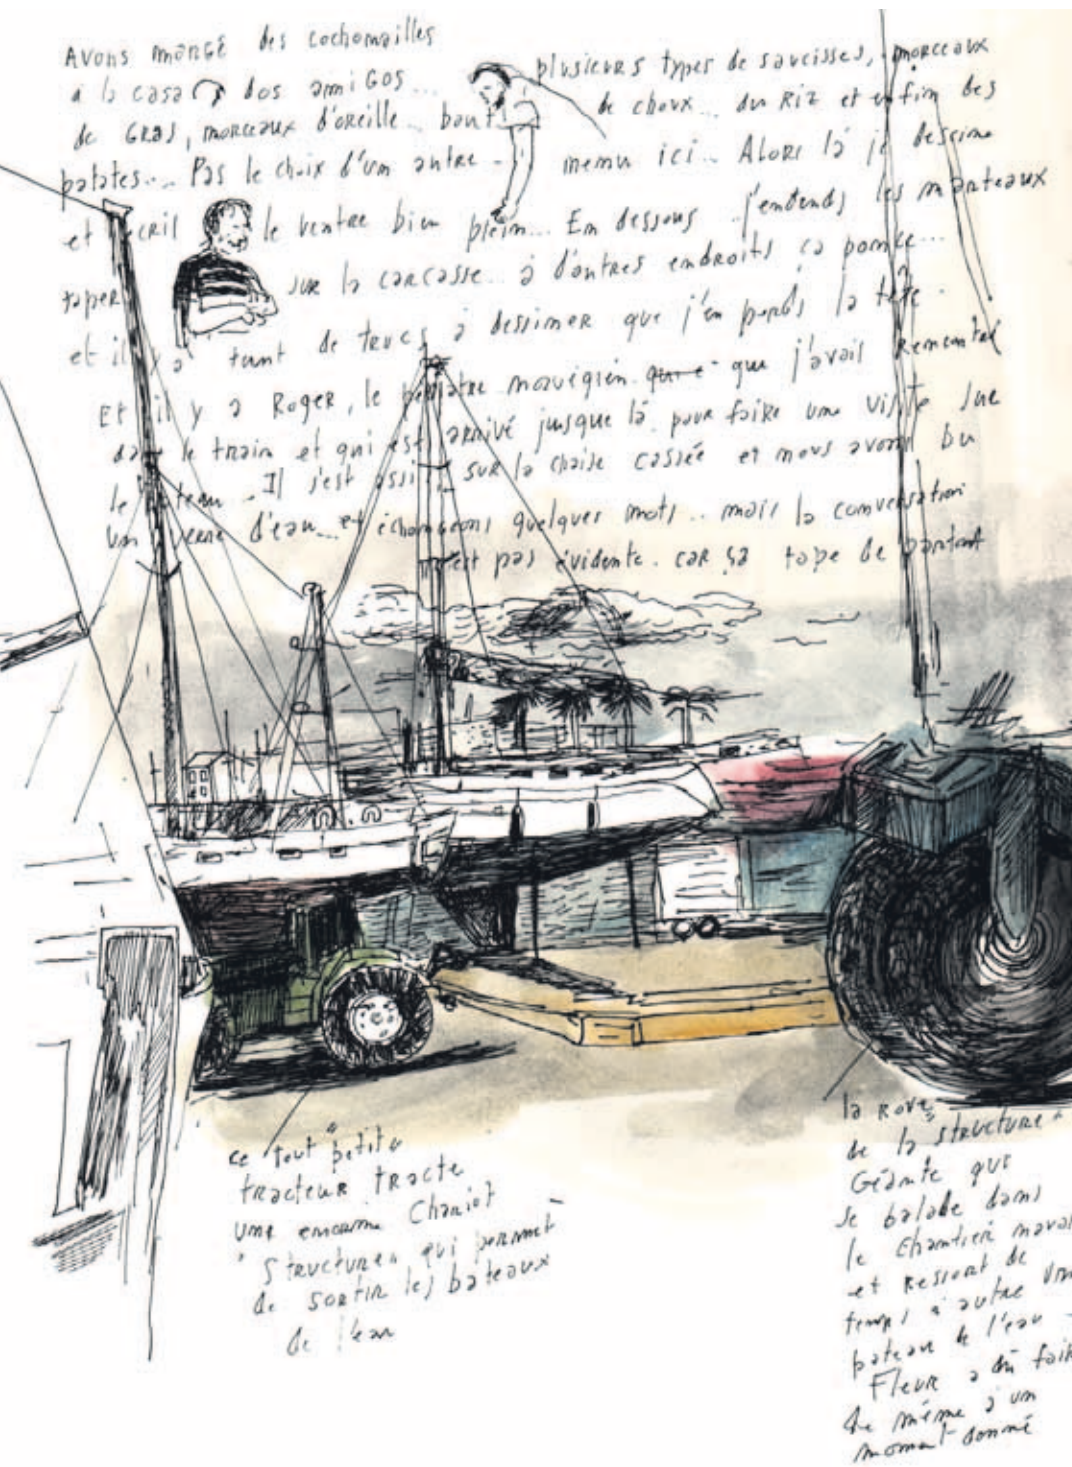 Avons mangé des cochonnailles
à la casa dos amigos...
plusieurs types de saucisses, morceaux
de GRAS, morceaux d'oreille... bout de choux... du Riz et enfin des
patates... Pas le choix d'un autre menu ici... Alors là je dessine
et écris le ventre bien plein... En dessous j'entends les marteaux
taper sur la carcasse... à d'autres endroits ça ponce...
et il y a tant de trucs à dessiner que j'en perds la tête.
Et il y a Roger, le pédiatre norvégien que j'avais rencontré
dans le train et qui est arrivé jusque là pour faire une visite sur
le bateau. Il s'est assis sur la chaise cassée et nous avons bu
un verre d'eau... et échangeons quelques mots... mais la conversation
n'est pas évidente. car ça tape de partout
ce tout "petit"
tracteur tracte
une énorme Chariot
"Structure" qui permet
de sortir les bateaux
de l'eau
la roue
de la "structure"
Géante qui
se balade dans
le Chantier naval
et ressort de
temps à autre un
bateau de l'eau -
Fleur a dû faire
de même à un
moment donné